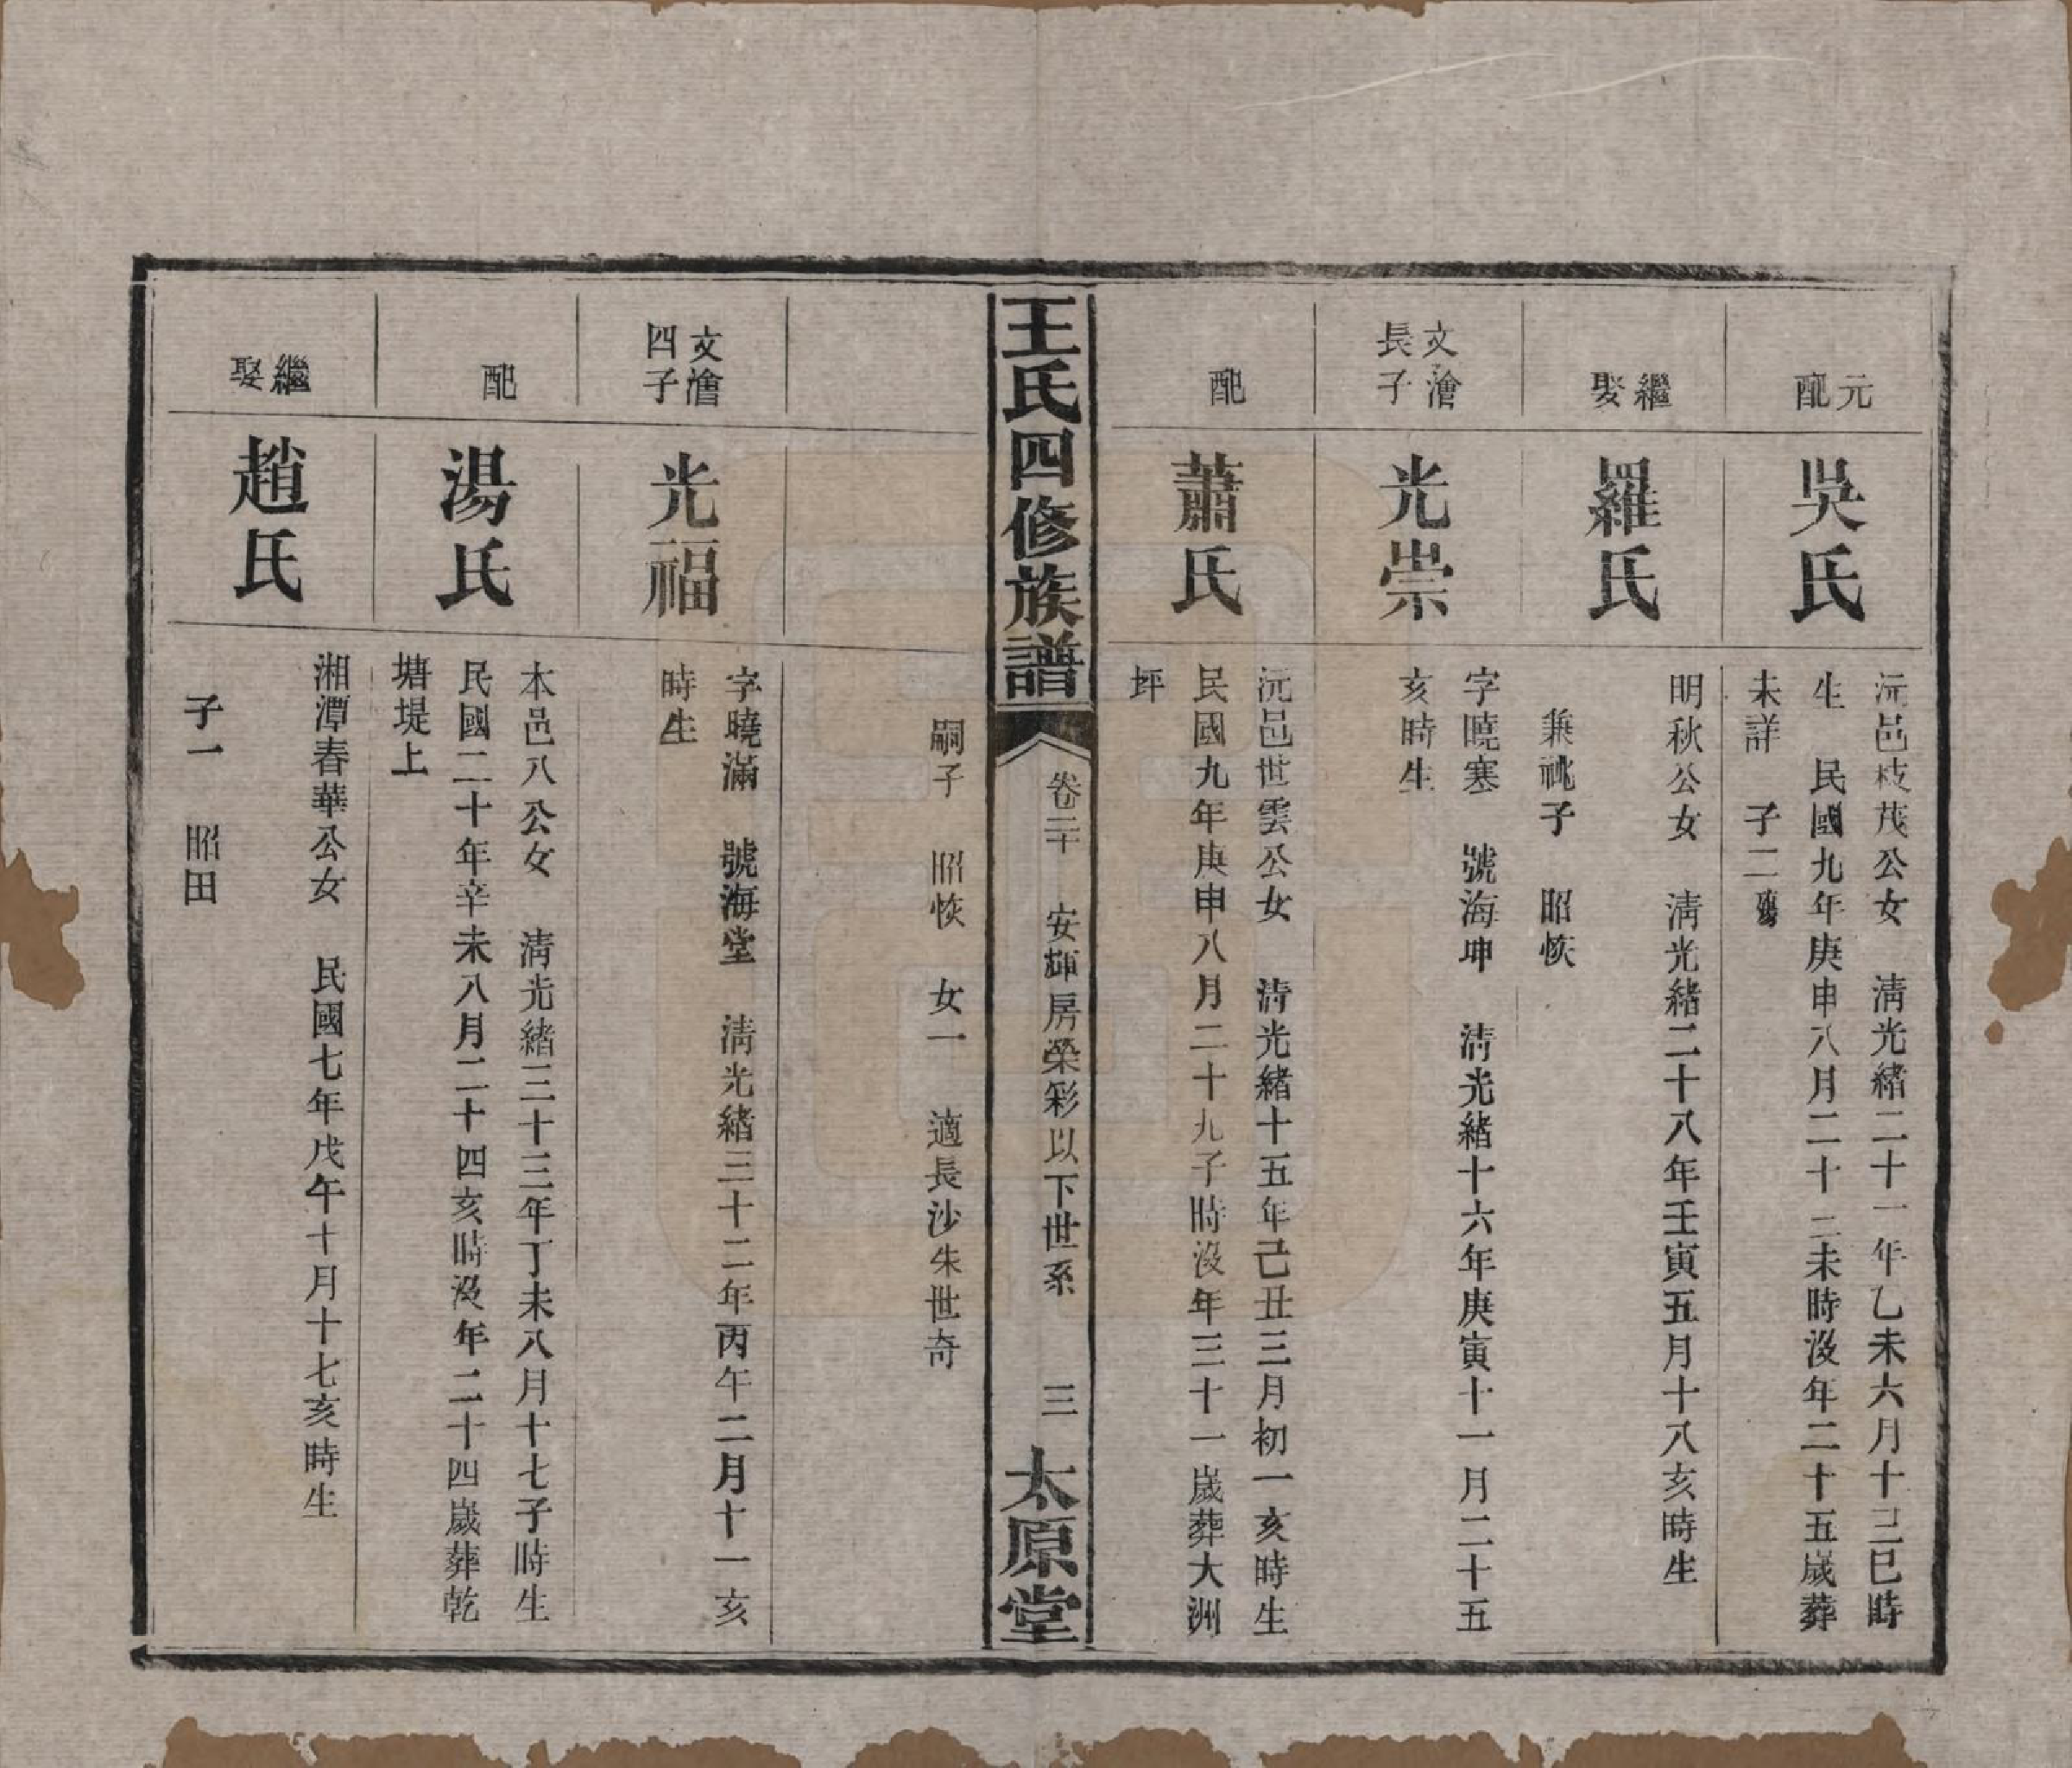 元配
吳氏
沅邑枝茂公女　清光緒二十一年乙未六月十三巳時
生　民國九年庚申八月二十二未時沒年二十五歲葬
未詳　子二
繼娶
羅氏
明秋公女　清光緒二十八年壬寅五月十八亥時生
兼祧子　昭恢
文澮
長子
光崇
字曉寒　號海坤　清光緒十六年庚寅十一月二十五
亥時生
配
蕭氏
沅邑世雲公女　清光緒十五年己丑三月初一亥時生
民國九年庚申八月二十九子時沒年三十一歲葬大洲
坪
王氏四修族譜
卷二十　安輝房榮彩以下世系　三
太原堂
嗣子　昭恢　女一　適長沙朱世奇
文澮
四子
光福
字曉滿　號海堂　清光緒三十二年丙午二月十一亥
時生
配
湯氏
本邑八公女　清光緒三十三年丁未八月十七子時生
民國二十年辛未八月二十四亥時沒年二十四歲葬乾
塘堤上
繼娶
趙氏
湘潭春華公女　民國七年戊午十月十七亥時生
子一　昭田